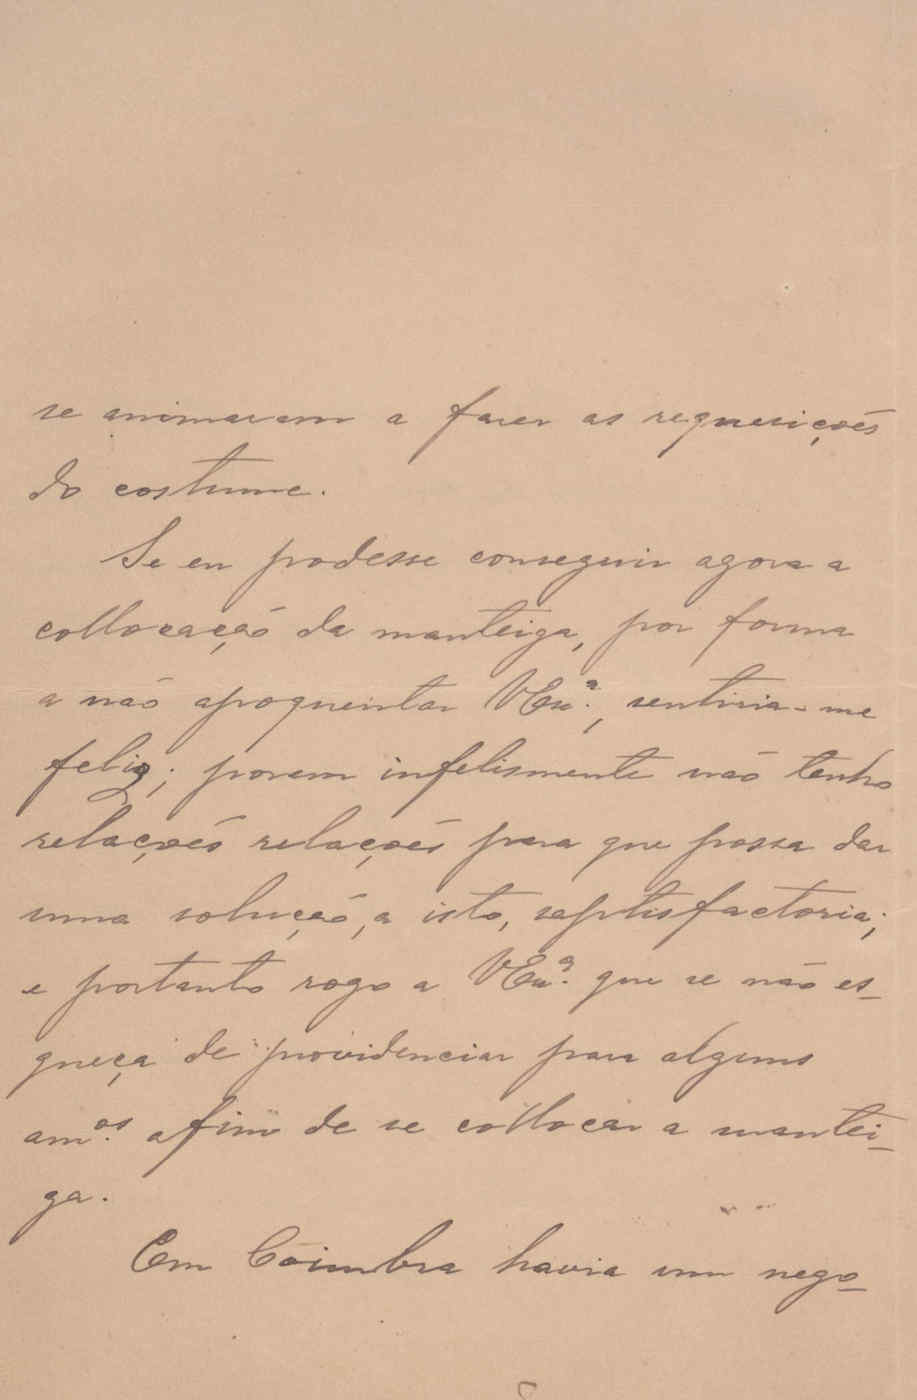 se animavam a faser as requesições
do costume.
Se eu podesse conseguir agora a
collocação da manteiga, por forma
a não apoquentar VExª., sentiria-me
feliz; porem infelismente não tenho
relações relações para que possa dar
uma solução, a isto, saptisfactoria;
e portanto rogo a VExª. que se não es-
queça de providenciar para alguns
am.os afim de se collocar a mantei-
ga.
Em Coimbra havia um nego-